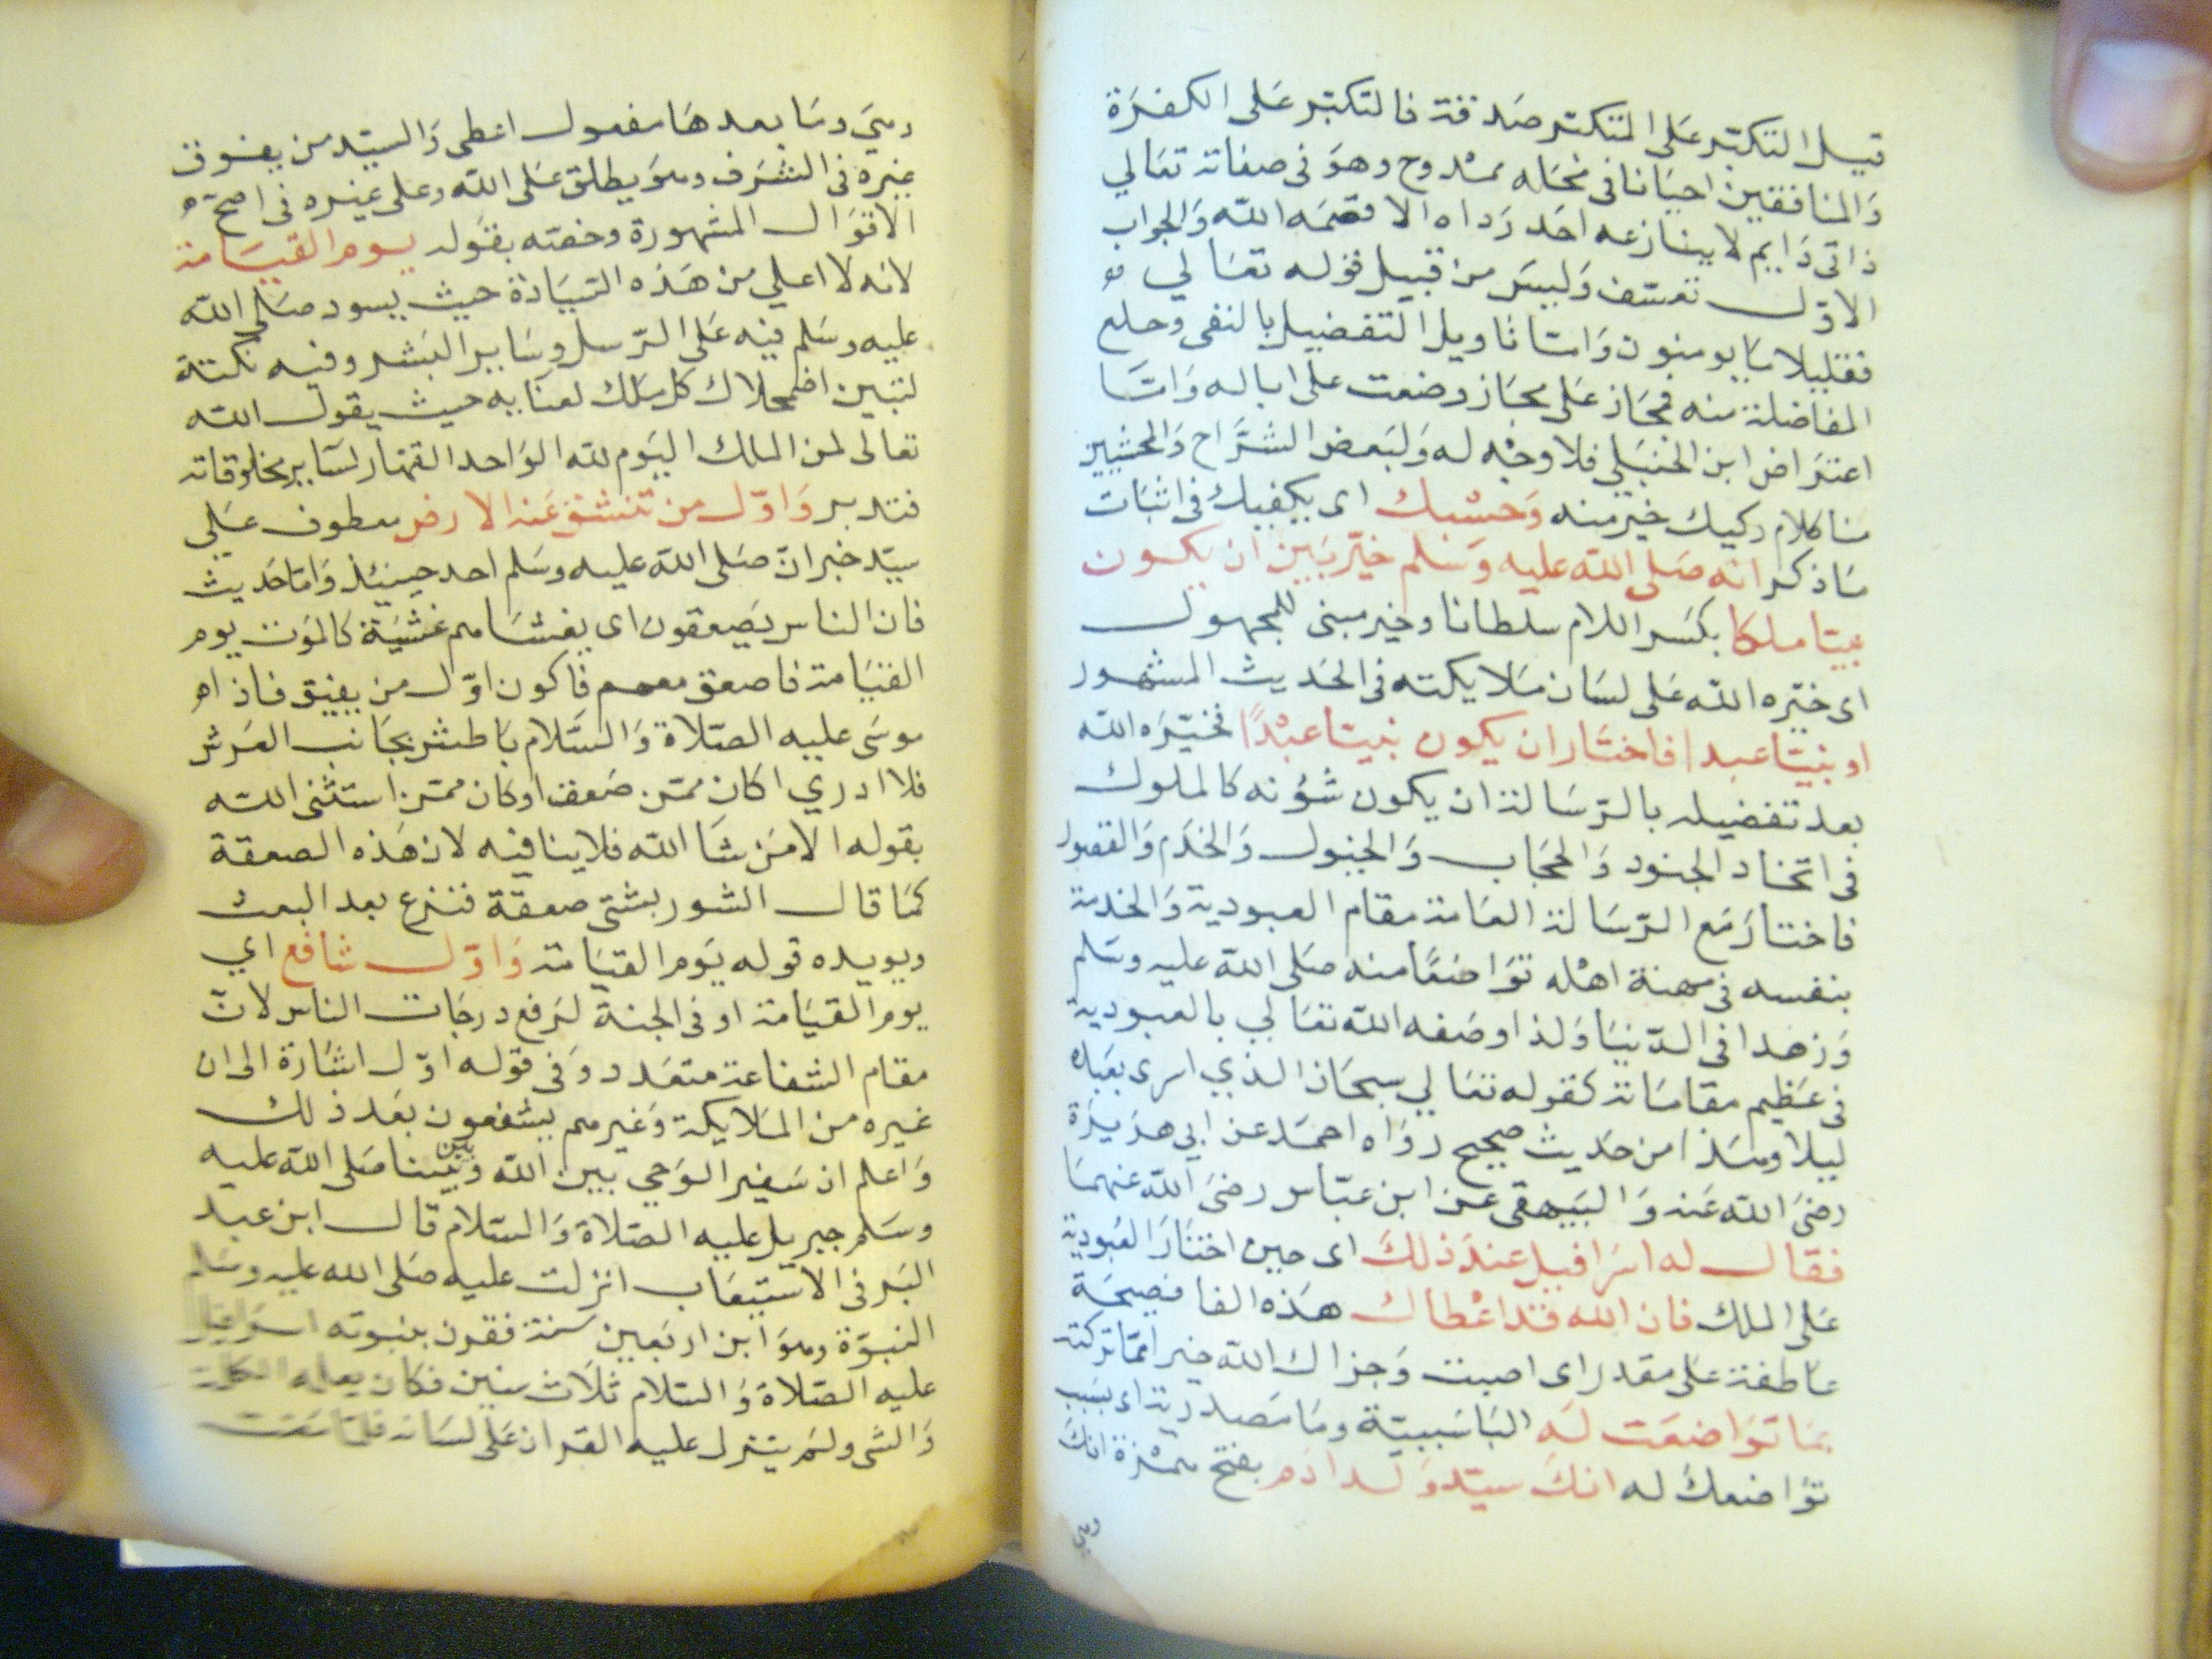 قيل التكبّر على المتكبّر صدقة فالتكبّر على الكفرة
وَالمنافقين احيَانا فى محَله ممْدوح وهوَ فى صفاته تعَالي
ذاتى دَايم لا ينازعه احَد رَداه الا قصَمَه الله وَالجواب
الاوّل تعسّف وَليسَ من قبيل قوله تعَالي
فقليلا مَا يومنون وَامّا تاويل التفضيل بالنفى وحلع
المفاضلة منه فمجَاز عَلى مجَاز وضعت على اباله وَامّا
اعتراض ابن الحنبَلي فلا وجْه له وَلبَعض الشرَّاح وَالمحشيين
هنا كلام ركيك خير منه وَحسْبك اى يكفيك فى اثبَات
مَا ذكر انه صَلى الله عليه وَسَلم خيّر بَين ان يكون
نبيّا ملكا بكسَر اللام سلطانا وخير مبنى للمجهول
اى خيّره الله عَلى لسَان مَلايكته فى الحَديث المشهور
او نبيّا عبدا فاختَار ان يكون نبيّا عبْدًا فخيّرَه الله
بعد تفضيله بالرّسَالة ان يكون شؤنه كالملوك
فى اتخاد الجنود وَالحجَاب وَالخيول وَالخدَم وَالقصور
فاختارَ مَع الرّسَالة العَامة مقام العبودية وَالخدمة
بنفسه فى مهنة اهْله توَاضعًا منه صَلى الله عليه وسَلم
وَزهدا فى الدّنيَا وَلذا وصَفه الله تعَالي بالعبودية
فى عَظيم مقامَاته كقوله تعَالي سبحَان الذي اسرى بعَبده
ليلا وهَذا من حَديث صحيح روَاه احمَد عن ابي هرَيرَة
رضىَ الله عَنه وَالبَيهقى عن ابن عبّاس رضىَ الله عنهمَا
فقال له اسرَافيل عندَ ذلكَ اى حين اختارَ العبودية
عَلى الملك فان الله قد اعْطاك هَذه الفا فصيحَة
عاطفة على مقدر اى اصبت وَجزاك الله خيرا ممّا تركته
بمَا توَاضعَت لَه البَا سَببيّة ومَا مَصدرية اى بسَبب
توَاضعك له انكَ سيّد وَلد ادَم بفتح همْزة انكَ
وهى
وهيَ ومَا بعدهَا مفعول اعطى وَالسيّد من يفوق
غيره فى الشرَف وهوَ يطلق عَلى الله وعلى غيره فى اصحّ
الاقوَال المشهورة وخصّه بقوله يوم القيَامة
لانه لا اعلي من هَذه السّيَادة حيث يسود صَلى الله
عليه وسَلم فيه عَلى الرّسل وسَاير البَشر وفيه نكتة
لتبين اضمحلاك كل ملك لعنابه حيث يقول الله
تعالى لمن الملك اليَوم لله الوَاحد القهّار لسَاير مخلوقاته
فتدبر وَاوّل من تنشق عَنه الارض معطوف عَلي
سيّد خبر انّ صَلى الله عليه وسَلم احد حينئذ وَامّا حَديث
فان الناس يَصعقون اى يغشاهم غشيَة كالموَت يوم
القيَامة فاصعق معهم فاكون اوّل من يفيق فاذا
موسَى عليه الصّلاة وَالسَّلام بَاطش بجَانب العَرش
فلا ادري اكان ممّن صَعق او كان ممّن استثنى الله
بقوله الا مَن شَا الله فلا ينافيه لان هَذه الصعقة
كمَا قال الشوربشتى صعقة فنزع بعد البعث
ويويده قوله يَوم القيَامة وَاوّل شافع اي
يوم القيَامة او فى الجنة لرَفع درجَات الناس لانّ
مقام الشفاعة متعَدد وَفى قوله اوّل اشَارة الى ان
غيره من المَلايكة وَغيرهم يشفعون بعَد ذلك
وَاعلم ان سَفير الوَحي بين الله وَبَين نبينا صَلى الله عليه
وسَلم جبريل عليه الصّلاة وَالسّلام قال ابن عبد
البَر فى الاستيعَاب انزلت عليه صَلى الله عليه وسَلم
النبوّة وهوَ ابن اربَعين سَنة فقرن بنبوته اسرَافيل
عليه الصّلاة وَالسّلام ثلَاث سنين فكان يعلمه الكلمة
وَالشى ولم ينزل عليه القران عَلى لسَانه فلمّا مَضت